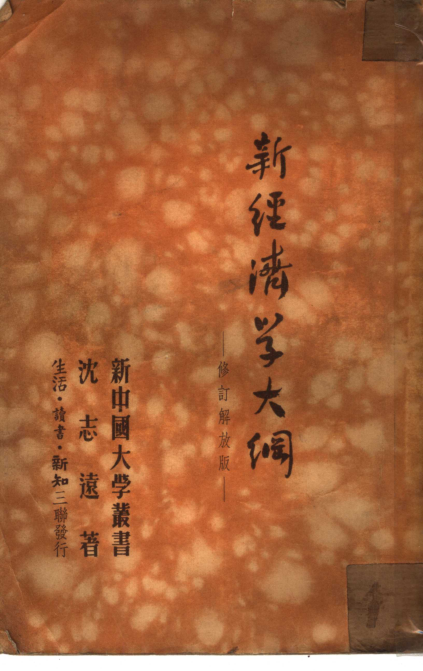 新經濟学大綱
—修訂解放版—
新中國大学叢書
沈志遠著
生活·讀書·新知三聯發行